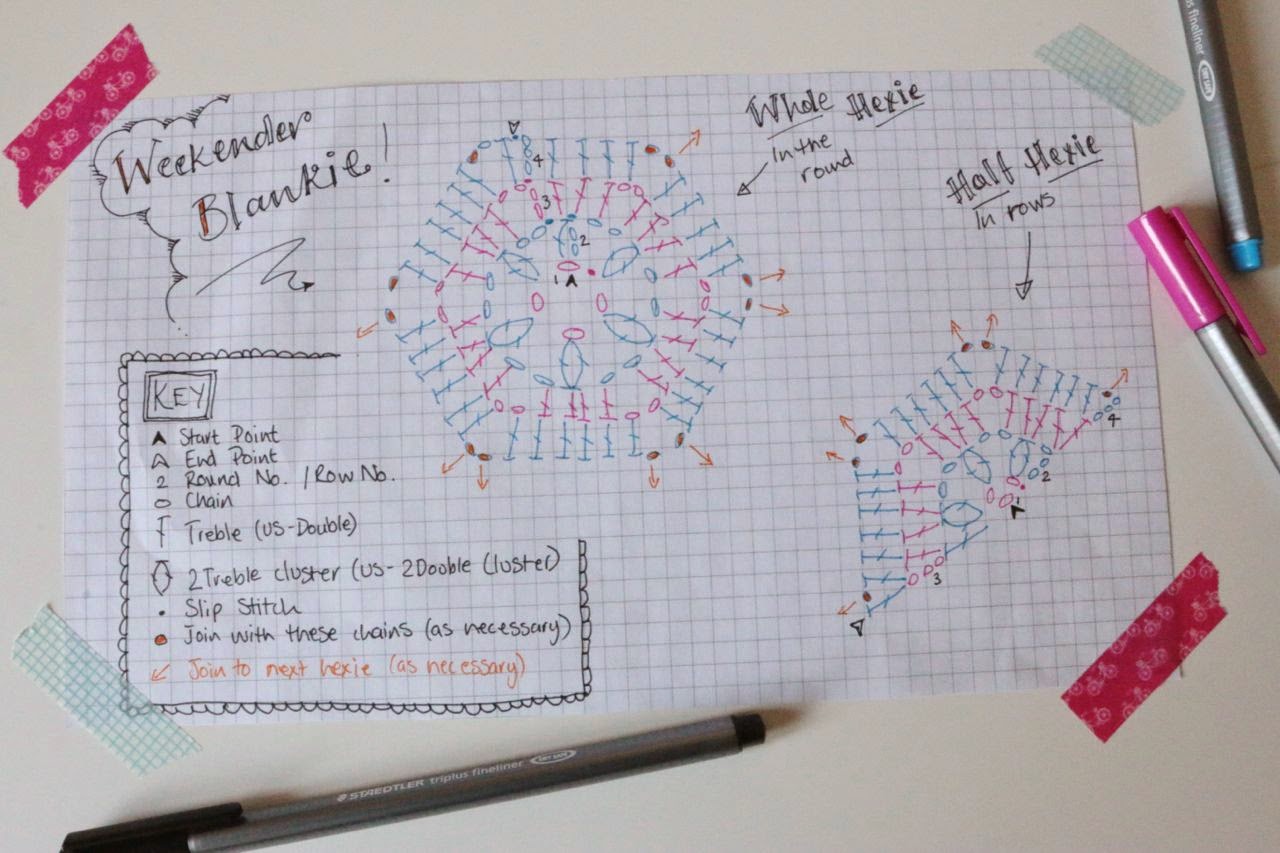 Weekender
Blankie!
Whole Hexie
In the
round
Half Hexie
In rows
4
3
2
1
4
2
1
3
KEY
Start Point
End Point
2 Round No. / Row No.
Chain
Treble (US-Double)
2 Treble cluster (US-2Dooble Cluster)
Slip Stitch
Join with these chains (as necessary)
Join to next hexie (as necessary)
STAEDTLER triplus fineliner
DRY SAFE
plus fineliner
DRY SAFE